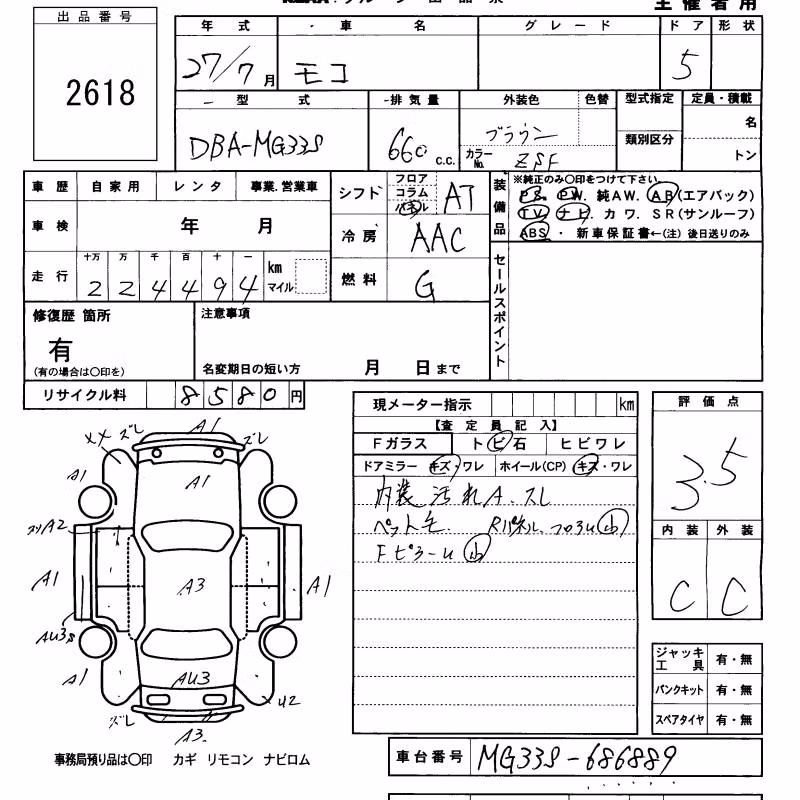 主催者用
出品番号
2618
年式 ・車名 グレード ドア 形状
27/7月 モコ 5
型式 排気量 外装色 色替 型式指定 定員・積載
DBA-MG33S 660 c.c. ブラウン 類別区分 名
カラーNo. ZSF トン
車歴 自家用 レンタ 事業.営業車
車検 年 月
走行 十万 万 千 百 十 一 km マイル
2 2 4 4 9 4
シフト フロア コラム パネル AT
冷房 AAC
燃料 G
装備品 ※純正のみ○印をつけて下さい。
P S. P W. 純A W. A B(エアバック)
T V. ナビ. カワ. S R(サンルーフ)
ABS ・ 新車保証書←(注) 後日送りのみ
セールスポイント
修復歴 箇所
有
(有の場合は○印を)
注意事項
名変期日の短い方 月 日まで
リサイクル料 8580円
現メーター指示 km
【査定員記入】
Fガラス トビ石 ヒビワレ
ドアミラー キズ・ワレ ホイール(CP) キズ・ワレ
内装 汚れA.スレ
ペット毛.
小
小
評価点
3.5
内装 外装
C C
ジャッキ工具 有・無
パンクキット 有・無
スペアタイヤ 有・無
A1
ズレ
ズレ
A1
A1
A2
A1
A3
A1
AU3S
A1
AU3
U2
ズレ
A3
事務局預り品は○印 カギ リモコン ナビロム
車台番号 MG33S-686889